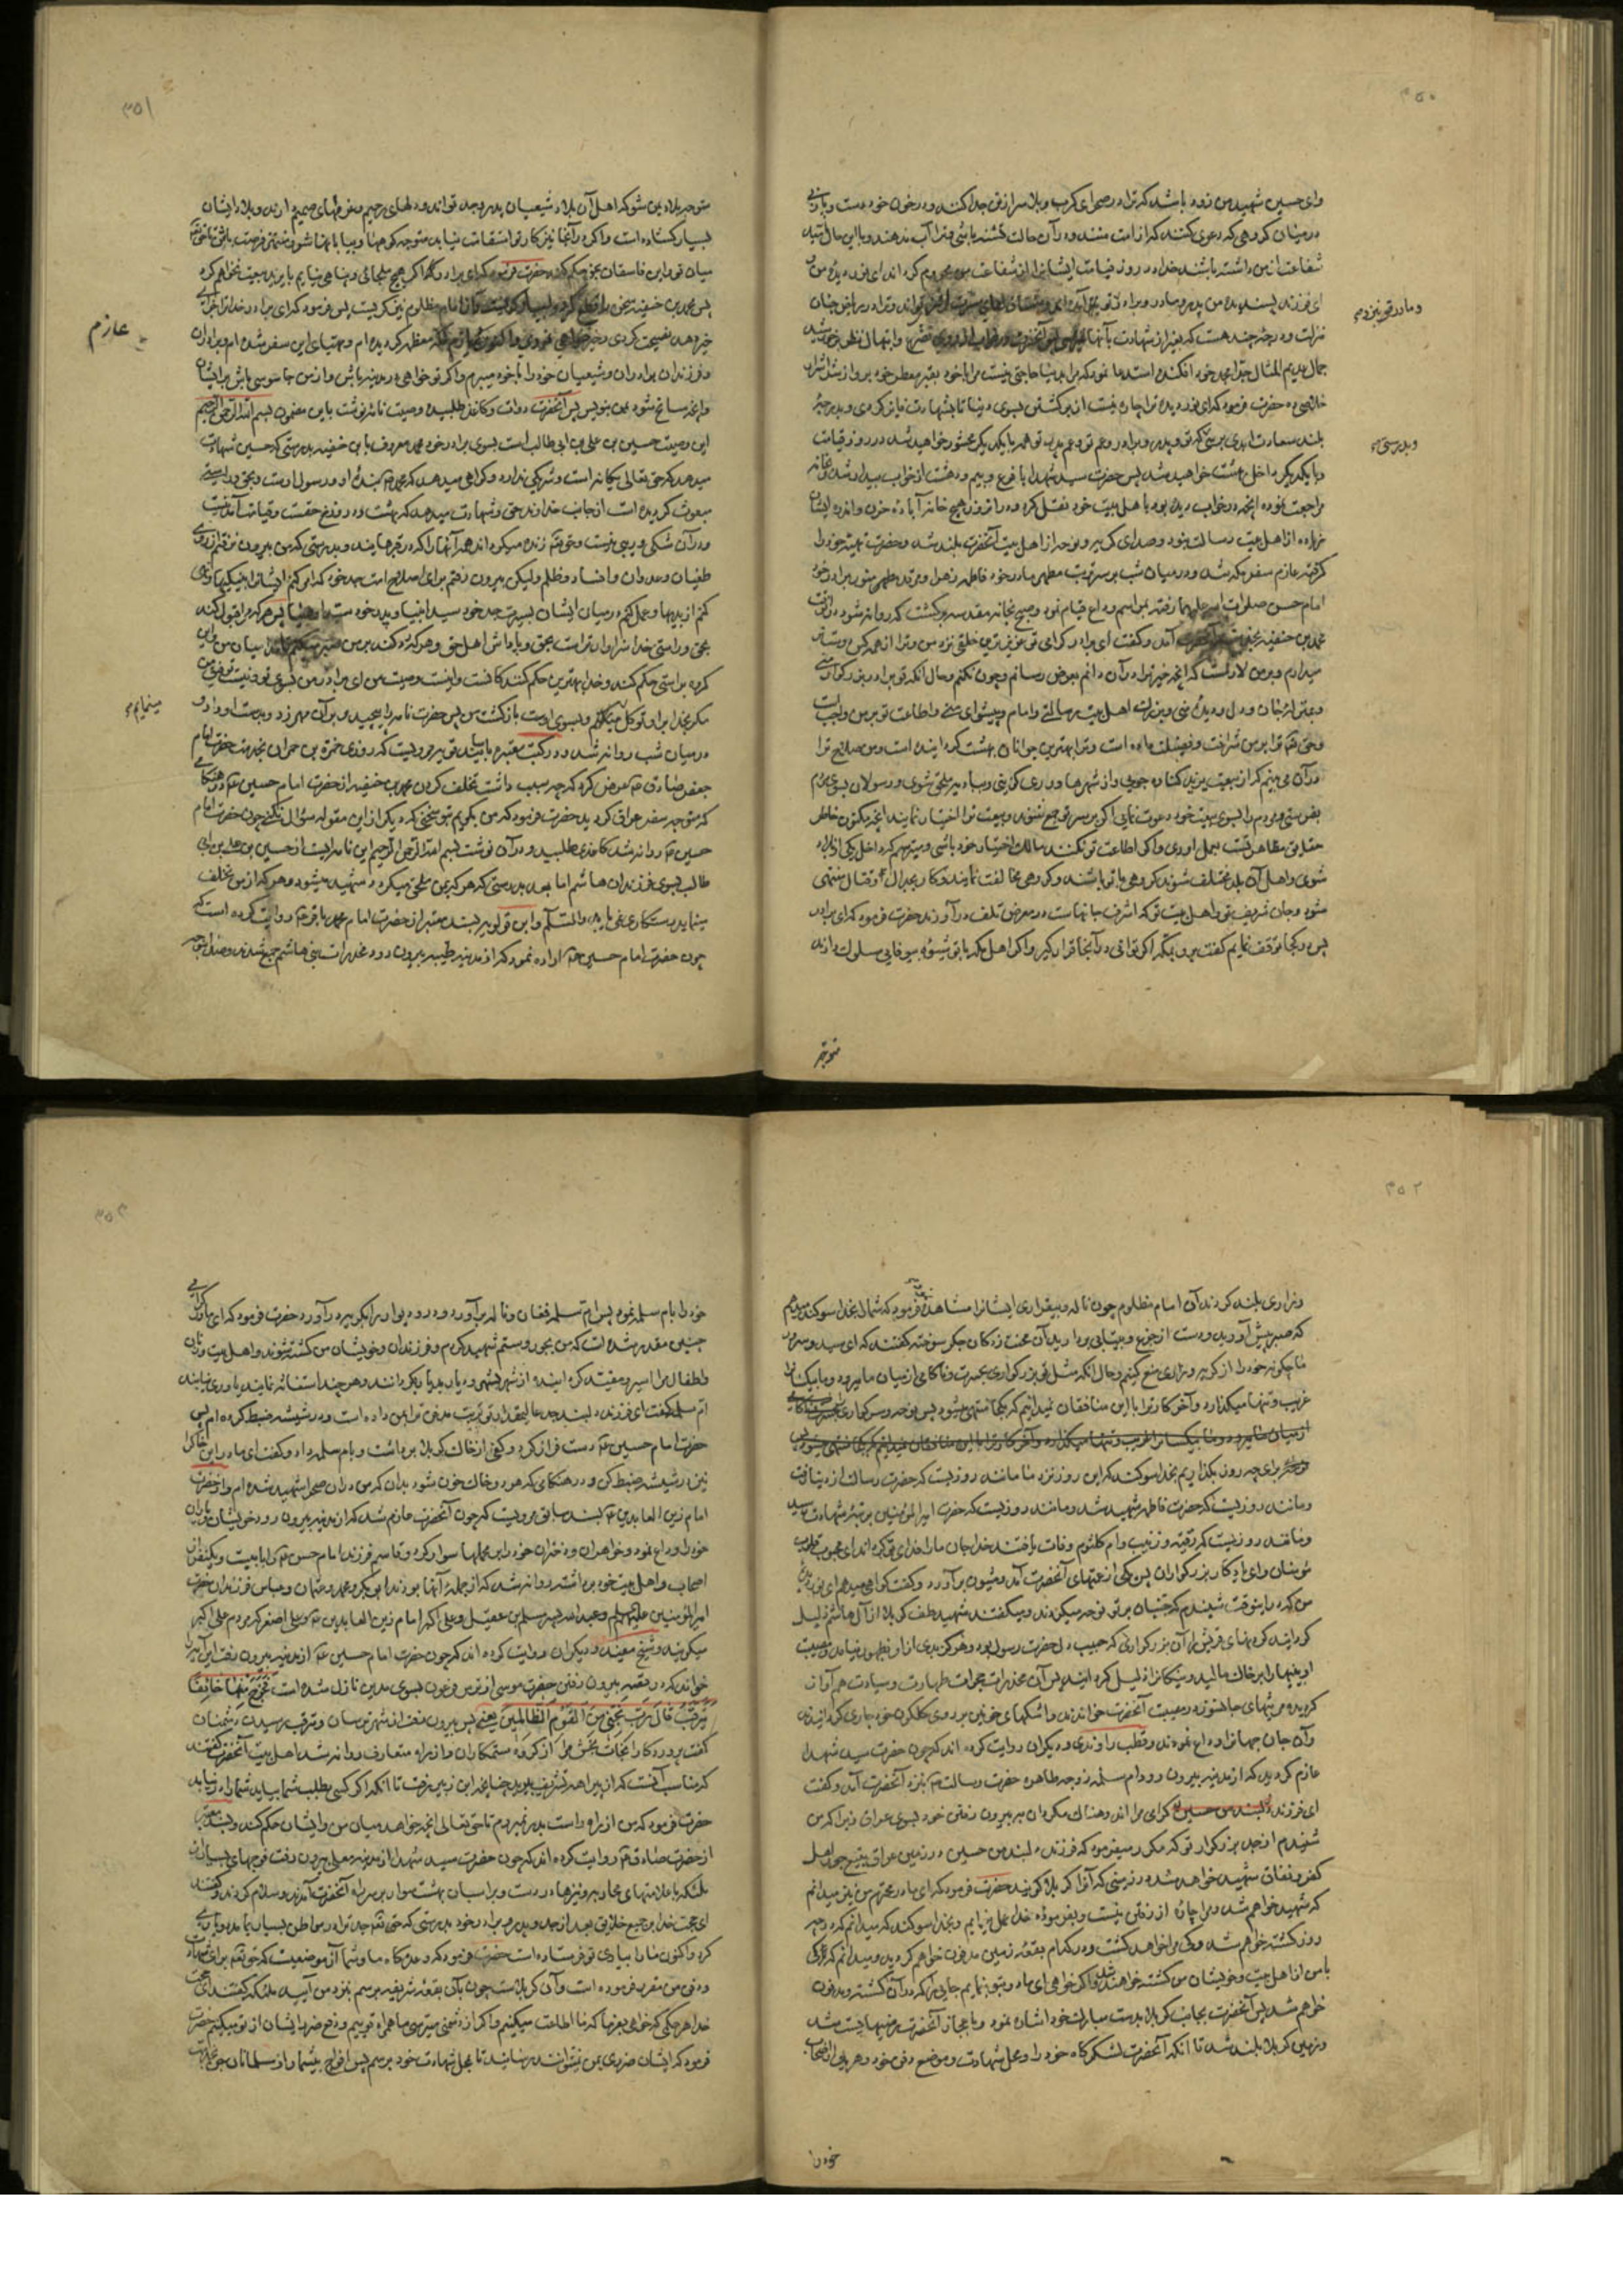 ۳۵۰
وای حسین شهید من زود باشد که ترا در صحرای کرب و بلا سر از تن جدا کنند و در خون خود دست و پا زنی
در میان گروهی که دعوی کنند که از امت منند و در آن حالت تشنه باشی و ترا آب ندهند و با این حال امید
شفاعت از من داشته باشند خدا در روز قیامت ایشانرا از شفاعت من محروم کرداند ای نور دیده من
ای فرزند پسندیده من پدر و مادر و برادر تو نزد من آمده اند و مشتاق لقای تو اند و ترا در ریاض جنان
و مادر تو نزد من
منزلت و درجه چند هست که بغیر از شهادت بآنها نمیرسی پس آنحضرت در خواب
جمال عدیم المثال جد امجد خود افکنده استدعا نمود که مرا بدنیا حاجتی نیست مرا با خود بقبر مطهر خود بر و از شر اشرار
خلاصی ده حضرت فرمود که ای نور دیده ترا چاره نیست از برگشتن بسوی دنیا تا بشهادت فایز گردی و بدرجه
بلند سعادت ابدی برسی که تو و پدر و برادر و عم تو و عم پدر تو همه با یکدیگر محشور خواهید شد در روز قیامت
و بدرستی
و با یکدیگر داخل بهشت خواهید شد پس حضرت سید شهدا با فزع و بیم و دهشت از خواب بیدار شد و بخانه
مراجعت نموده آنچه در خواب دیده بود با اهل بیت خود نقل کرد و در انروز هیچ خانه آباده حزن و اندوه ایشان
زیاده از اهل بیت رسالت نبود و صدای گریه و نوحه از اهل بیت آنحضرت بلند شد و حضرت تهیه خود را
گرفته عازم سفر مکه شد و در میان شب بر سر تربت مطهر مادر خود فاطمه زهرا و مرقد مطهر منور برادر خود
امام حسن صلوات الله علیهما رفته مراسم وداع قیام نمود و صبح بخانه مقدسه برگشت که روانه شود در انوقت
محمد بن حنفیه بخدمت آنحضرت آمد و گفت ای برادر گرامی تو عزیزترین خلقی نزد من و ترا از همه کس دوستتر
میدارم و بر من لازمست که آنچه خیر ترا در آن دانم بعرض رسانم و چون نکنم و حال آنکه تو برادر بزرگوار منی
و بمنزله جان و دل و دیده منی و بزرگ اهل بیت رسالتی و امام و پیشوای منی و اطاعت تو بر من واجبست
و حق تعالی ترا بر من شرافت و فضیلت داده است و ترا بهترین جوانان بهشت گردانیده است و من صلاح ترا
در آن می بینم که از بیعت یزید کناره جویی و از شهرها دوری گزینی و ببادیه ملتجی شوی و رسولان بسوی مردم
بفرستی و مردم را بسوی بیعت خود دعوت نمایی اگر بر سر تو جمع شوند و بیعت ترا اختیار نمایند آنچه مکنون خاطر
حقایق مظاهر تست بعمل اوری و اگر اطاعت تو نکنند مالک اختیار خود باشی و میترسم که داخل یکی از بلاد
شوی و اهل آن بلد مختلف شوند گروهی با تو باشند و گروهی مخالفت نمایند و کار بجدال و قتال منتهی
شود و جان شریف تو و اهل بیت تو که اشرف جانهاست در معرض تلف در آورند حضرت فرمود که ای برادر
پس در کجا توقف نمایم گفت برو بمکه اگر توانی در آنجا قرار گیر و اگر اهل مکه با تو شیوه بیوفایی سلوک دارند
متوجه
۳۵۱
متوجه بلاد یمن شو که اهل آن بلاد شیعیان پدر و جد تو اند و دلهای رحیم و عزمهای صمیم دارند و بلاد ایشان
بسیار گشاده است و اگر در آنجا نیز کار تو استقامت نیابد متوجه کوهها و بیابانها شو و منتظر فرصت باش تا حق تعالی
میان تو و این فاسقان بحق حکم کند حضرت فرمود که ای برادر والله اگر هیچ ملجائی و پناهی نیابم با یزید بیعت نخواهم کرد
پس محمد بن حنفیه سخن را قطع کرد و بسیار گریست و آن امام مظلوم نیز گریست پس فرمود که ای برادر خدا ترا جزای
خیر دهد نصیحت کردی و خیرخواهی نمودی و اکنون عازم مکه معظمه گردیده ام و مهیای این سفر شده ام و برادران
عازم
و فرزندان برادران و شیعیان خود را با خود میبرم و اگر تو خواهی در مدینه باش و از من جاسوسی باش بر ایشان
و آنچه سانح شود بمن بنویس پس آنحضرت دوات و کاغذ طلبید و وصیت نامه نوشت باین مضمون بسم الله الرحمن الرحیم
این وصیت حسین بن علی بن ابی طالب است بسوی برادر خود محمد معروف بابن حنفیه بدرستی که حسین شهادت
میدهد که حق تعالی یگانه است و شریکی ندارد و گواهی میدهد که محمد بنده او و رسول اوست و بحق و راستی
مبعوث گردیده است از جانب خداوند حق و شهادت میدهد که بهشت و دوزخ حقست و قیامت آمدنیست
و در آن شکی و ریبی نیست و حق تعالی زنده میگرداند همه آنها را که در قبرهایند و بدرستی که من بیرون نرفتم از روی
طغیان و عدوان و افساد و ظلم ولیکن بیرون رفتم برای اصلاح امت جد خود که امر کنم ایشانرا به نیکیها و نهی
کنم از بدیها و عمل کنم در میان ایشان بسیرت جد خود سید انبیا و پدر خود سید اوصیا پس هر که مرا قبول کند
بحق و راستی خدا سزاوارتراست بحق و پاداش اهل حق و هر که رد کند بر من صبر میکنم تا خدا میان من و این
گروه براستی حکم کند و خدا بهترین حکم کنندگانست و اینست وصیت من ای برادر من بسوی تو و نیست توفیق من
مگر بخدا بر او توکل مینمایم و بسوی اوست بازگشت من پس حضرت نامه را پیچید و مهر بر آن زد و بدست او داد و
مینمایم
در میان شب روانه شد و در کتب معتبره باسانید قویه مرویست که روزی حمزه بن حمران بخدمت حضرت امام
جعفر صادق عرض کرد که چه سبب داشت تخلف کردن محمد بن حنفیه از حضرت امام حسین در هنگامی
که متوجه سفر عراق گردید حضرت فرمود که من بگویم بتو سخنی که دیگر از این مقوله سؤال نکنی چون حضرت امام
حسین روانه شد کاغذی طلبید و در آن نوشت بسم الله الرحمن الرحیم این نامه ایست از حسین بن علی بن ابی
طالب بسوی فرزندان هاشم اما بعد بدرستی که هر که بمن ملحق میگردد شهید میشود و هر که از من تخلف
مینماید رستگاری نمی یابد والسلام و ابن قولویه بسند معتبر از حضرت امام محمد باقر روایت کرده است که
چون حضرت امام حسین اراده نمود که از مدینه طیبه بیرون رود مخدرات بنی هاشم جمع شدند و صدا بنوحه
۳۵۲
و زاری بلند کردند آن امام مظلوم چون ناله و بیقراری ایشانرا مشاهده نمود فرمود که شما را بخدا سوگند میدهم
که صبر پیش آورید و دست از جزع و بیتابی بردارید آن محنت زدگان جگر سوخته گفتند که ای سید و سرور
ما چگونه خود را از گریه و زاری منع کنیم و حال آنکه مثل تو بزرگواری بحسرت و ناکامی از میان ما میرود و ما بیکسانرا
غریب و تنها میگذارد و آخر کار ترا با این منافقان نمیدانیم که بکجا منتهی میشود پس نوحه و سوگواری
از میان ما میرود و ما بیکسانرا غریب و تنها میگذارد و آخر کار ترا با این منافقان نمیدانیم که بکجا منتهی میشود پس
برای چه روز بگذاریم بخدا سوگند که این روز نزد ما مانند روزیست که حضرت رسالت از دنیا رفت
و مانند روزیست که حضرت فاطمه شهید شد و مانند روزیست که حضرت امیرالمؤمنین بمرتبه شهادت رسید
و مانند روزیست که رقیه و زینب و ام کلثوم وفات یافتند خدا جان ما را فدای تو گرداند ای محبوب قلوب
مؤمنان و ای یادگار بزرگواران پس یکی از عمتهای آنحضرت آمد و شیون برآورد و گفت گواهی میدهم ای نور دیده
من که در این وقت شنیدم که جنیان بر تو نوحه میکردند و میگفتند شهید طف کربلا از آل هاشم ذلیل
گردانید گردنهای قریش را آن بزرگواری که حبیب دل حضرت رسول بود و هرگز بدی از او بظهور نیامد و مصیبت
او بینیها را بر خاک مالید و نیکانرا ذلیل گردانید پس آن مخدرات حجرات طهارت و سیادت هم آواز
گردیده مرثیهای جانسوز در مصیبت آنحضرت خواندند و اشکهای خونین بر روی گلگون خود جاری گردانیدند
و آن جان جهانرا وداع نمودند و قطب راوندی و دیگران روایت کرده اند که چون حضرت سید شهدا
عازم گردید که از مدینه بیرون رود ام سلمه زوجه طاهره حضرت رسالت بنزد آنحضرت آمد و گفت
ای فرزند دلبند من حسین گرامی مرا اندوهناک مگردان به بیرون رفتن خود بسوی عراق زیرا که من
شنیدم از جد بزرگوار تو که مکرر میفرمود که فرزند دلبند من حسین در زمین عراق بتیغ جور اهل
کفر و نفاق شهید خواهد شد در زمینی که آنرا کربلا گویند حضرت فرمود که ای مادر محترم من نیز میدانم
که شهید خواهم شد و مرا چاره از رفتن نیست و بفرموده خدا عمل مینمایم و بخدا سوگند که میدانم که در چه
روز کشته خواهم شد و کی مرا خواهد کشت و در کدام بقعه زمین مدفون خواهم گردید و میدانم که کی
با من از اهل بیت و خویشان من کشته خواهند شد و اگر خواهی ای مادر بتو بنمایم جایی را که در آن کشته و مدفون
خواهم شد پس آنحضرت بجانب کربلا بدست مبارک خود اشاره نمود و باعجاز آنحضرت زمینها پست شد
و زمین کربلا بلند شد تا آنکه آنحضرت لشکرگاه خود را و محل شهادت و موضع دفن خود و هر یک از اصحاب
خود را
۳۵۳
خود را بام سلمه نمود پس ام سلمه فغان و ناله برآورد و در و دیوار را بگریه درآورد حضرت فرمود که ای مادر گرامی
چنین مقدر شده است که من بجور و ستم شهید گردم و فرزندان و خویشان من کشته شوند و اهل بیت و زنان
و اطفال مرا اسیر و مقید گردانیده از شهر بشهر و دیار بدیار بگردانند و هر چند استغاثه نمایند یاوری نیابند
ام سلمه گفت ای فرزند دلبند جد عالیمقدار تو تربت مدفن ترا بمن داده است و در شیشه ضبط کرده ام پس
حضرت امام حسین دست فراز کرد و کفی از خاک کربلا برداشت و بام سلمه داد و گفت ای مادر این خاک را
نیز در شیشه ضبط کن و در هنگامی که هر دو خاک خون شود بدان که من در آن صحرا شهید شده ام و از حضرت
امام زین العابدین بسند سابق مرویست که چون آنحضرت عازم شد که از مدینه بیرون رود خویشان و یاران
خود را وداع نمود و خواهران و دختران خود را بر محملها سوار کرد و قاسم فرزند امام حسن را با بیست و یک نفر از
اصحاب و اهل بیت خود برداشته روانه شد که از جمله آنها بودند ابوبکر و محمد و عثمان و عباس فرزندان حضرت
امیرالمؤمنین علیهم السلام و عبدالله پسر مسلم بن عقیل و علی اکبر امام زین العابدین و علی اصغر که مردم علی اکبر
میگویند و شیخ مفید و دیگران روایت کرده اند که چون حضرت امام حسین از مدینه بیرون رفت این آیه را
خواند که در قصه بیرون رفتن حضرت موسی از ترس فرعون بسوی مدین نازل شده است فَخَرَجَ مِنْهَا خَائِفًا
یَتَرَقَّبُ قَالَ رَبِّ نَجِّنِی مِنَ الْقَوْمِ الظَّالِمِینَ یعنی پس بیرون رفت از شهر ترسان و مترقب رسیدن دشمنان
گفت پروردگارا نجات بخش مرا از گروه ستمکاران و از راه متعارف روانه شد اهل بیت آنحضرت گفتند
که مناسب آنست که از بیراهه تشریف ببرید چنانچه ابن زبیر رفت تا آنکه اگر کسی بطلب شما بیاید شما را در نیابد
حضرت فرمود که من از راه راست بدر نمیروم تا حق تعالی آنچه خواهد میان من و ایشان حکم کند و بسند معتبر
از حضرت صادق روایت کرده اند که چون حضرت سید شهدا از مدینه معلی بیرون رفت فوجهای بسیار از
ملئکه با علامتهای محاربه و نیزها در دست و بر اسبان بهشت سوار بر سر راه آنحضرت آمدند و سلام کردند و گفتند
ای حجت خدا بر جمیع خلایق بعد از جد و پدر و برادر خود بدرستی که حق تعالی جد ترا در مواطن بسیار بما مدد و یاری
کرد و اکنون ما را بیاری تو فرستاده است حضرت فرمود که وعدگاه ما و شما آن موضعیست که حق تعالی برای شهادت
و دفن من مقرر فرموده است و آن کربلاست چون بآن بقعه شریفه برسم بنزد من آیید ملئکه گفتند ای حجت
خدا هر حکمی که خواهی بفرما که ما اطاعت میکنیم و اگر از دشمنی میترسی ما همراه تو ییم و دفع ضرر ایشان از تو میکنیم حضرت
فرمود که ایشان ضرری بمن نمیتوانند رسانید تا بمحل شهادت خود برسم پس افواج بیشمار از مسلمانان جن